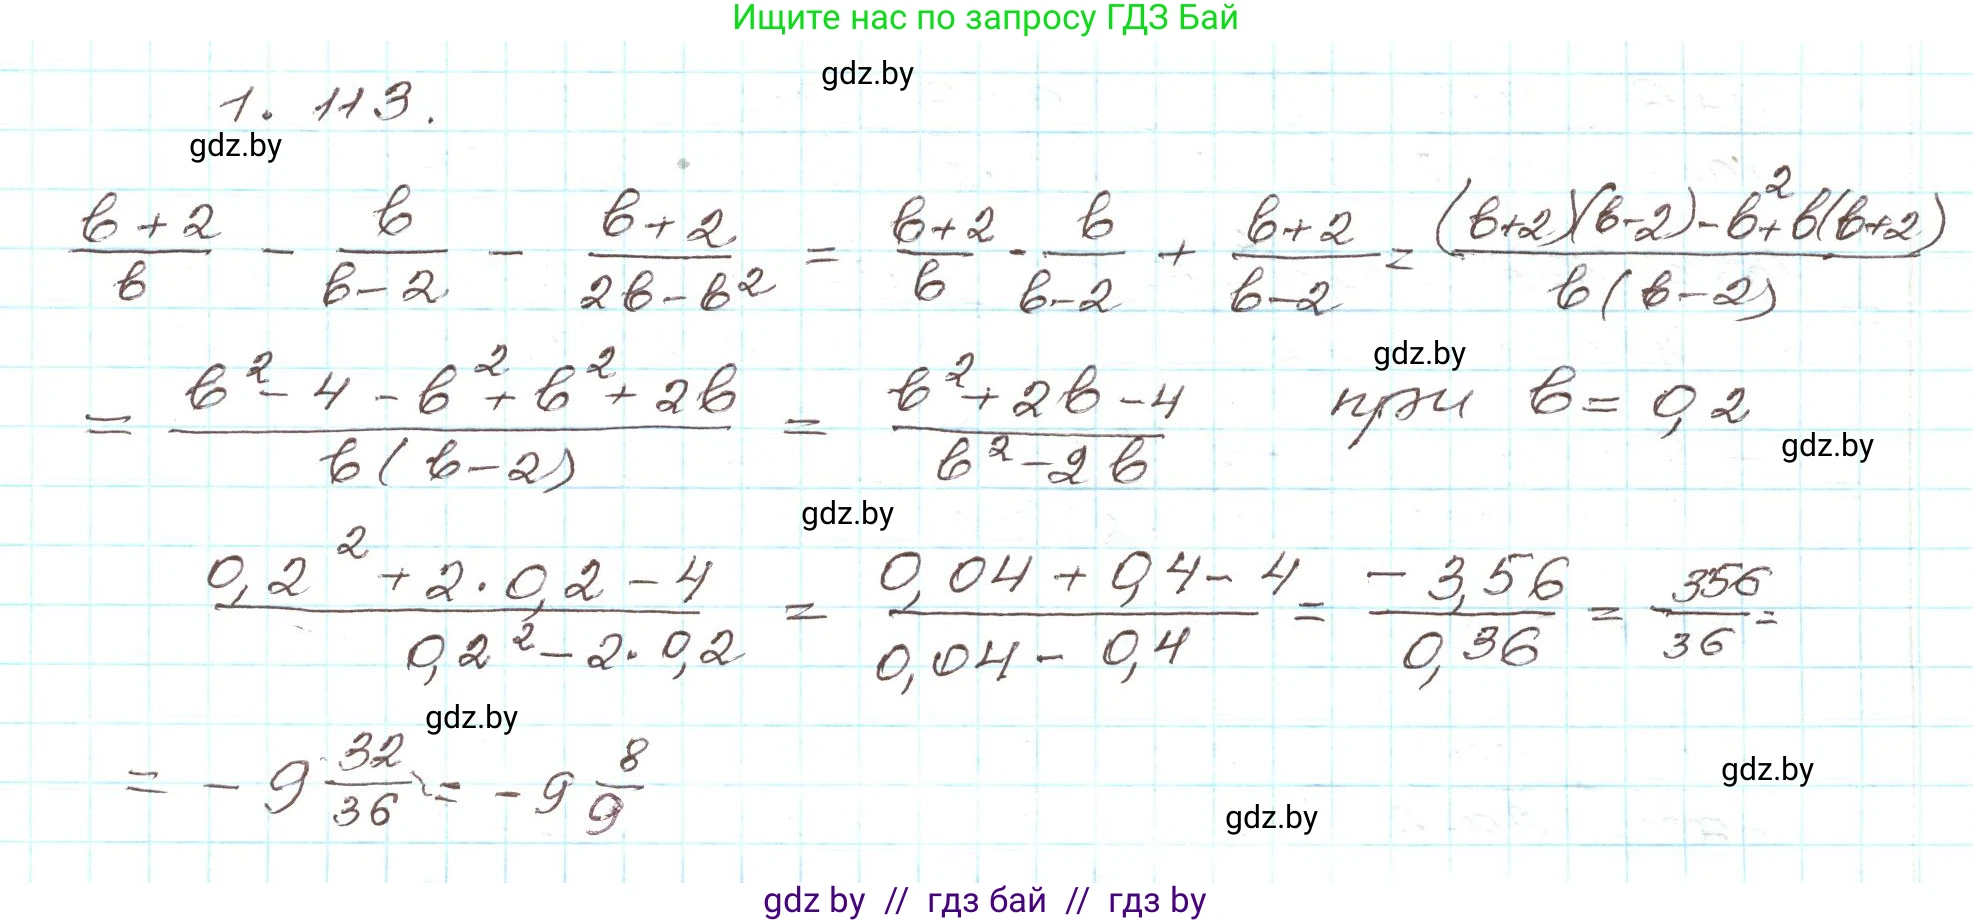 Ищите нас по запросу ГДЗ Бай
gdz.by
1. 113.
gdz.by
(b+2)/b - b/(b-2) - (b+2)/(2b-b²) = (b+2)/b - b/(b-2) + (b+2)/(b-2) = ((b+2)(b-2)-b²+b(b+2))/(b(b-2))
gdz.by
= (b²-4-b²+b²+2b)/(b(b-2)) = (b²+2b-4)/(b²-2b) при b=0,2
gdz.by
gdz.by
(0,2²+2·0,2-4)/(0,2²-2·0,2) = (0,04+0,4-4)/(0,04-0,4) = (-3,56)/(0,36) = -356/36 =
gdz.by
= -9 32/36 = -9 8/9
gdz.by
gdz.by
gdz by // гдз бай // гдз by